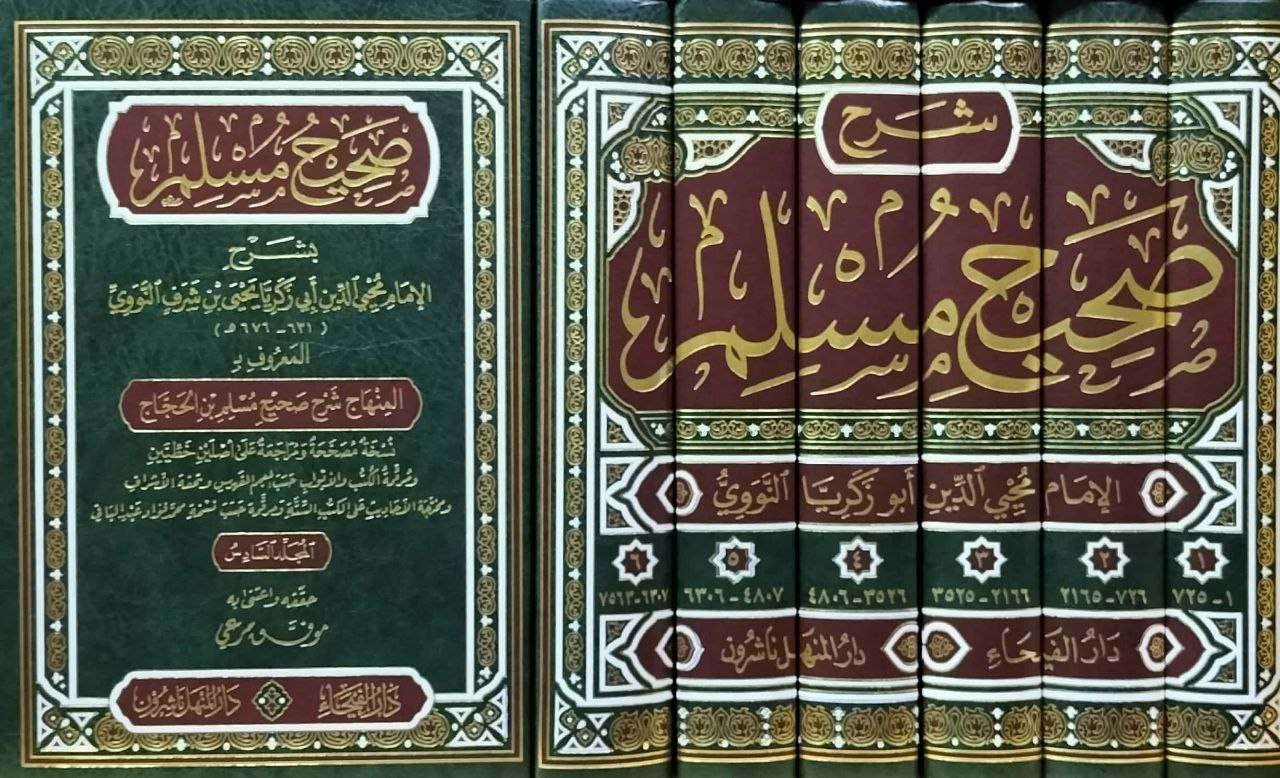 صَحِيحُ مُسْلِم
بِشَرْحِ
الإِمَامِ مُحْيِي الدِّينِ أَبِي زَكَرِيَّا يَحْيَى بْنِ شَرَفٍ النَّوَوِيِّ
( ٦٣١ - ٦٧٦ هـ )
المَعْرُوفِ بِـ
المِنْهَاجِ شَرْحِ صَحِيحِ مُسْلِمِ بْنِ الحَجَّاجِ
نُسْخَةٌ مُصَحَّحَةٌ وَمُرَاجَعَةٌ عَلَى أَصْلَيْنِ خَطِّيَّيْنِ
ومرقمة الكتب والأبواب حسب المعجم المفهرس وتحفة الأشراف
ومخرجة الأحاديث على الكتب الستة ومرقمة حسب نسخة محمد فؤاد عبد الباقي
المُجَلَّد السَّادِسُ
حققه واعتنى به
موفق مرعي
دَارُ الفَيْحَاءِ دَارُ المَنْهَل نَاشِرُون
شَرْح
صَحِيحُ مُسْلِم
الإِمَام مُحْيِي الدِّين أَبُو زَكَرِيَّا النَّوَوِيُّ
١ ٢ ٣ ٤ ٥ ٦
١ - ٧٢٥ ٧٢٦ - ٢١٦٥ ٢١٦٦ - ٣٥٢٥ ٣٥٢٦ - ٤٨٠٦ ٤٨٠٧ - ٦٣٠٦ ٦٣٠٧ - ٧٥٦٣
دَارُ الفَيْحَاءِ دَارُ المَنْهَل نَاشِرُون